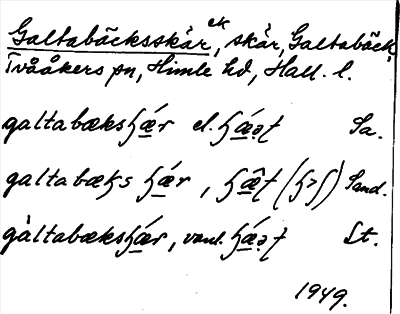 Galtabäcksskär, ek skär, Galtabäck,
Tvååkers sn, Himle hd, Hall. l.
galtabæksʃǽr el. ʃǽṛt Sa.
galtabæks ʃǽr, ʃæ̂t (ʃ>ʃ) Sand.
gàltabæksʃǽr, vanl. ʃǽṛt Lt.
1949.